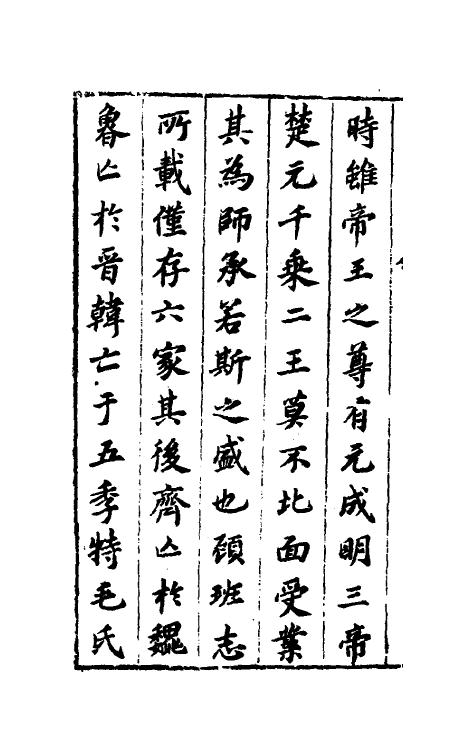 時雖帝王之尊有元成明三帝
楚元千乗二王莫不北面受業
其為師承若斯之盛也顧班志
所載僅存六家其後齊亾於魏
魯亾於晋韓亡于五季特毛氏